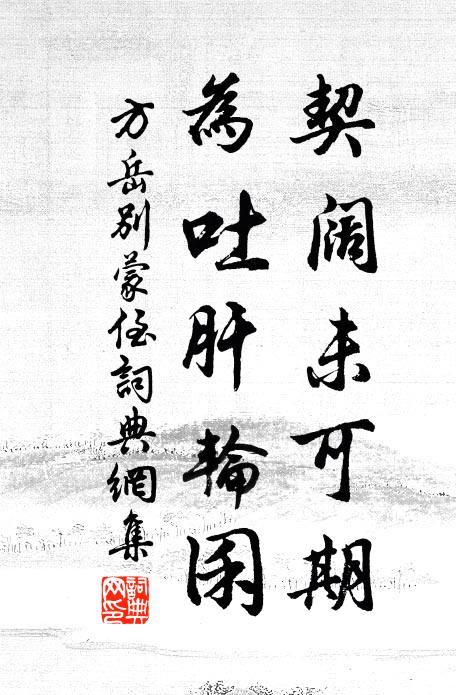 契闊未可期
為吐肝輪囷
方岳別蒙侄詞典網集
詞典网印